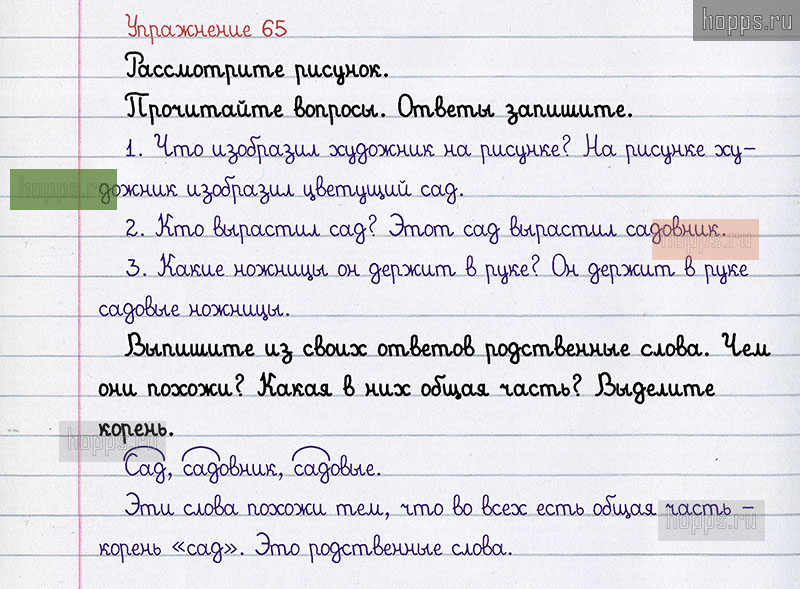 Упражнение 65
hopps.ru
Рассмотрите рисунок.
Прочитайте вопросы. Ответы запишите.
1. Что изобразил художник на рисунке? На рисунке ху-
дожник изобразил цветущий сад.
hopps.ru
2. Кто вырастил сад? Этот сад вырастил садовник.
hopps.ru
3. Какие ножницы он держит в руке? Он держит в руке
садовые ножницы.
Выпишите из своих ответов родственные слова. Чем
они похожи? Какая в них общая часть? Выделите
корень.
hopps.ru
Сад, садовник, садовые.
Эти слова похожи тем, что во всех есть общая часть –
hopps.ru
корень «сад». Это родственные слова.